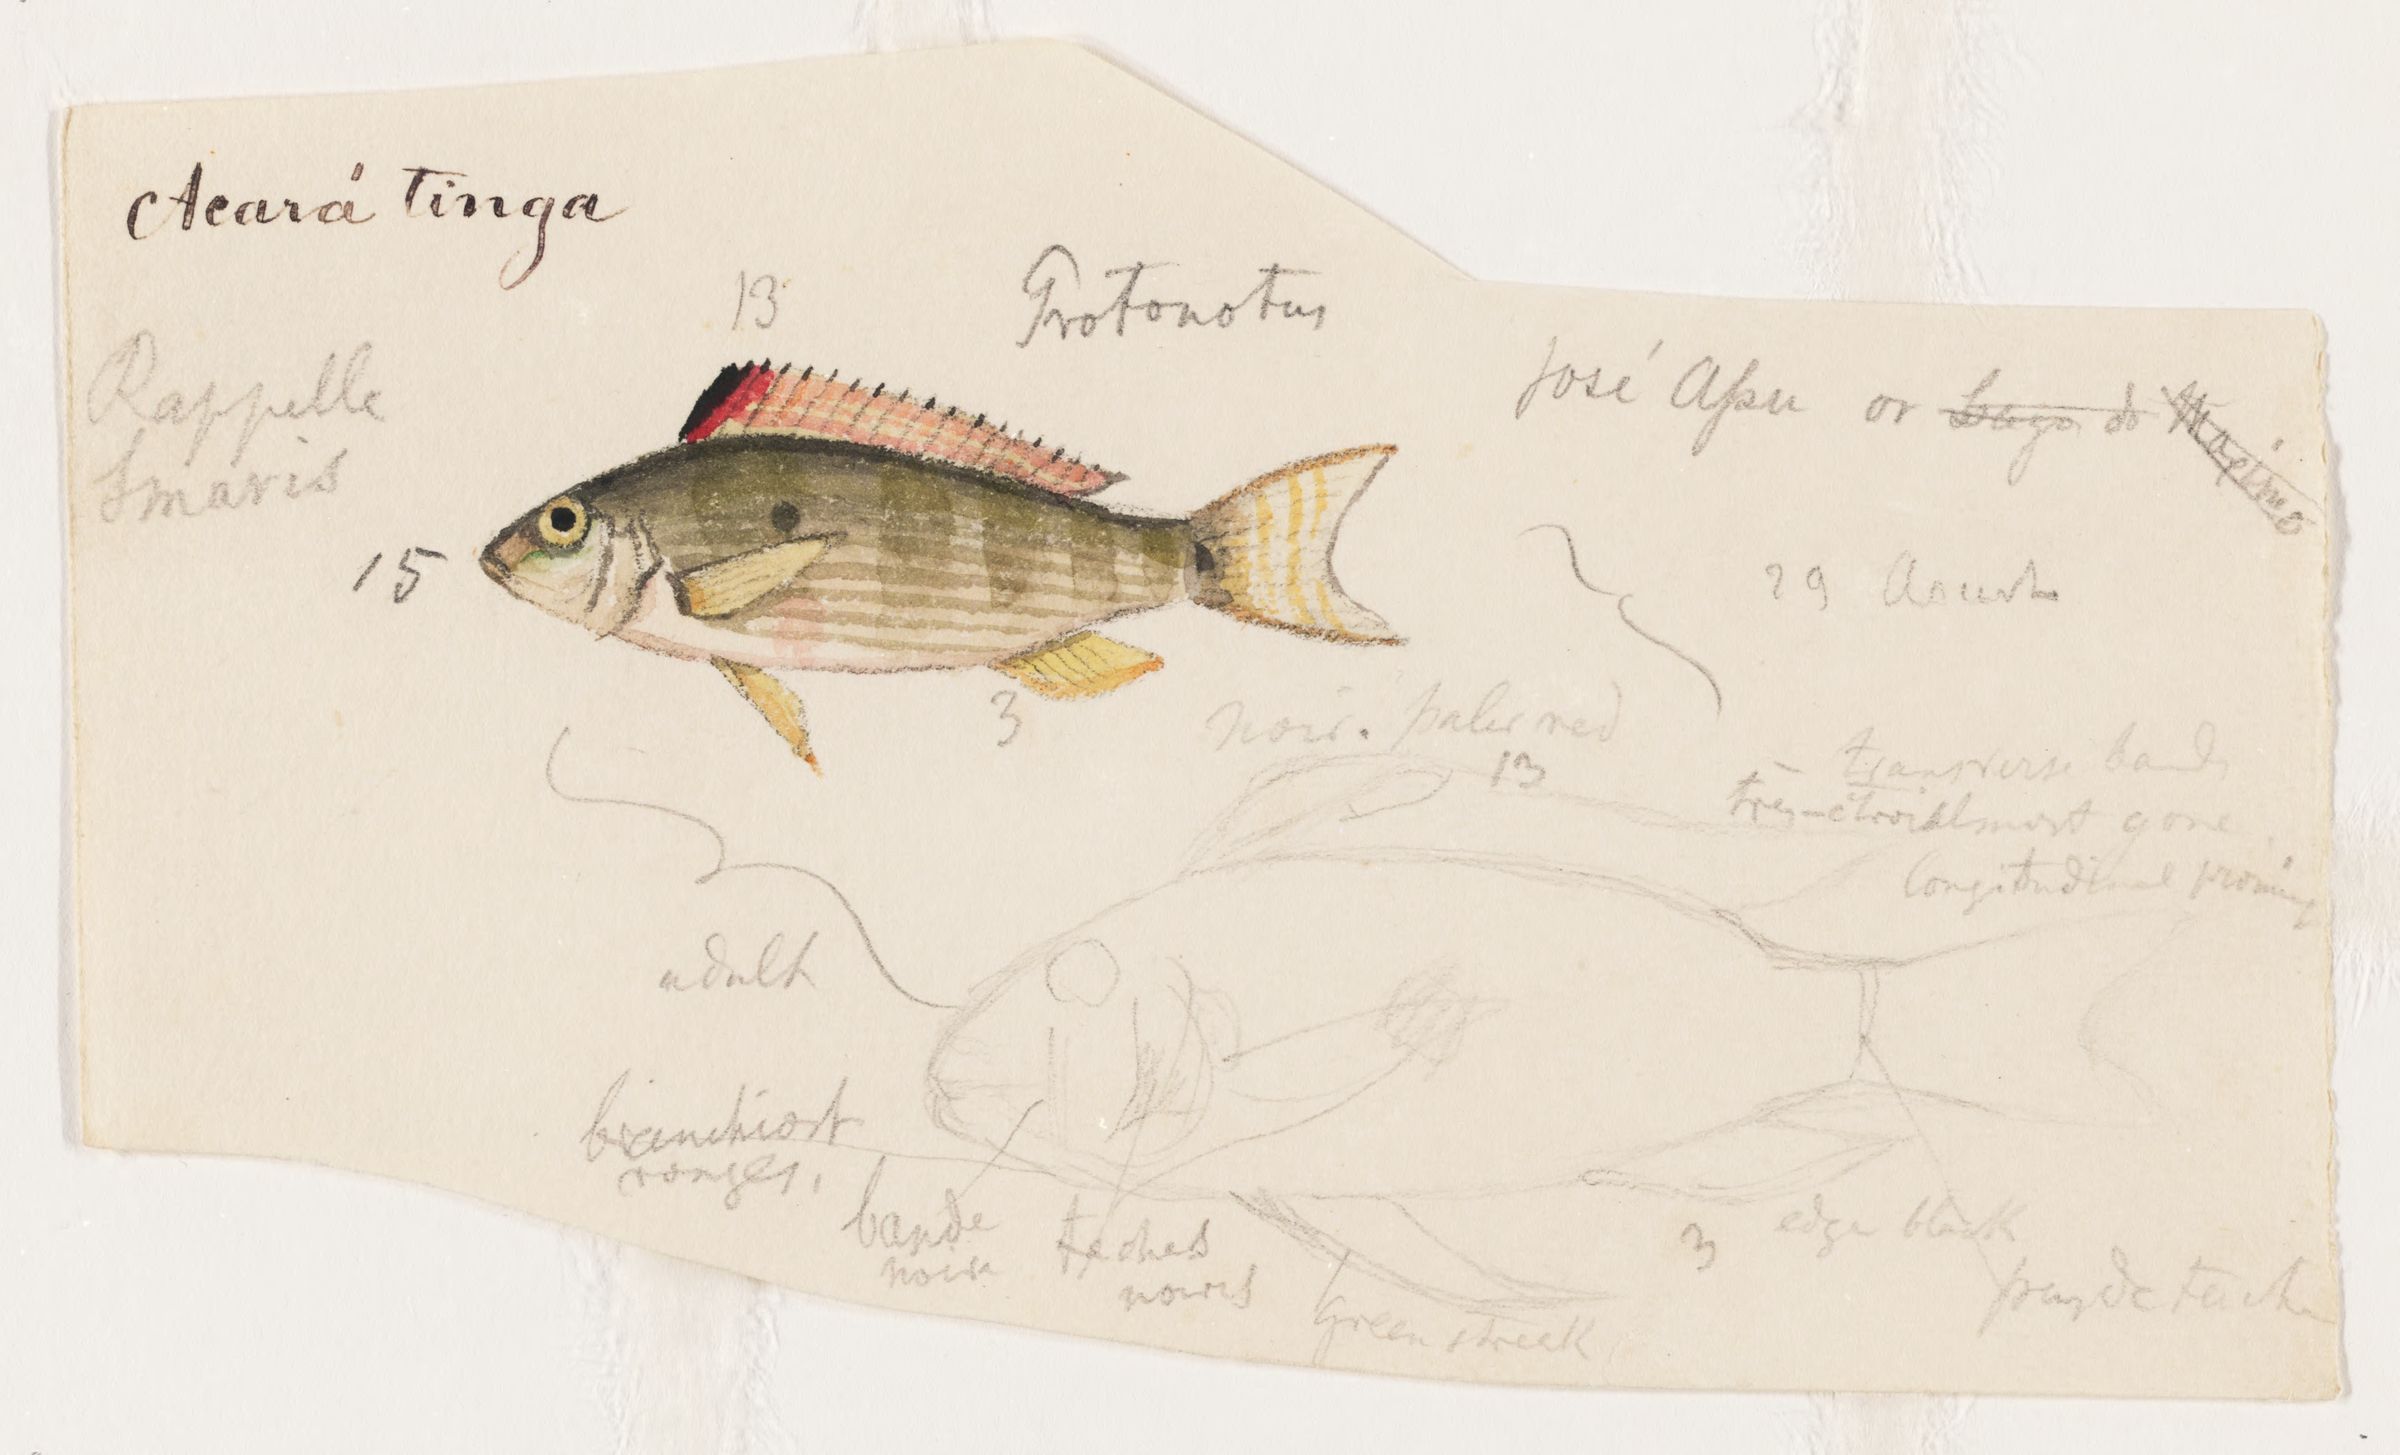 Acará tinga
13
Protonotus
Rappelle
Smaris
José Assu or Lago do Maximo
15
29 Aoust
3
noir. paler red
13
transverse bands
almost gone
longitudinal
adult
branchiost
rouges.
bande
noire
taches
noires
Green streak
3
edge black
pas de tache